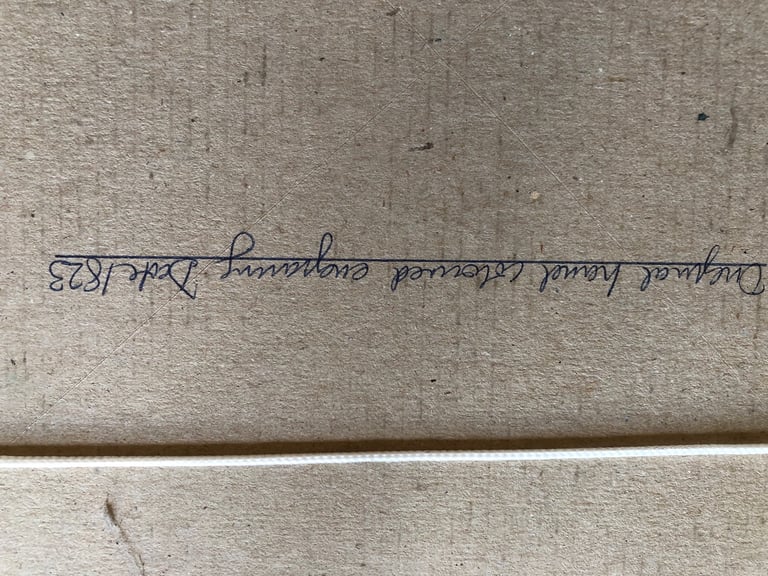 Original hand coloured engraving Date 1823